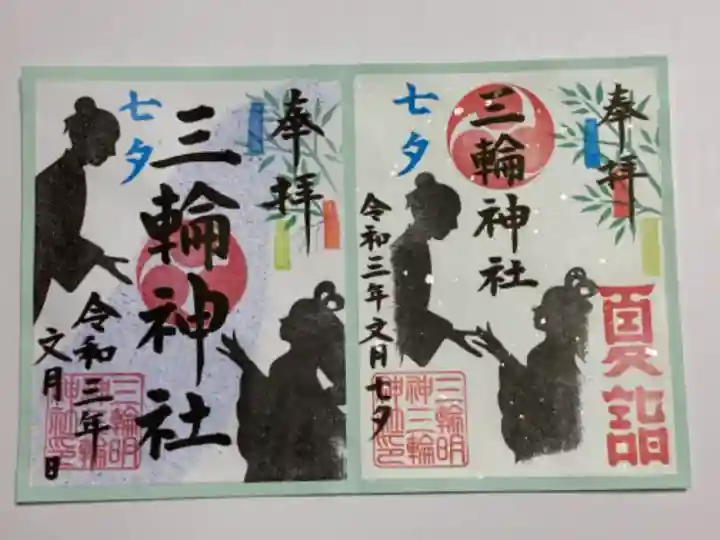 奉拝
三輪神社
七夕
令和三年
文月 日
三輪明
神三輪
神社印
奉拝
夏詣
三輪神社
七夕
令和三年文月七夕
三輪明
神三輪
神社印